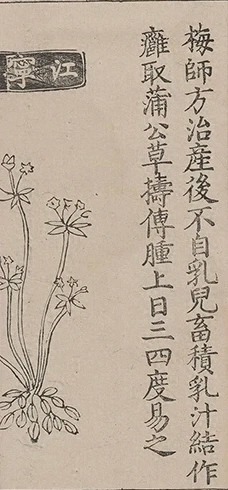 梅師方治産後不自乳兒畜積乳汁結作
癰取蒲公草擣傅腫上日三四度易之
江寧